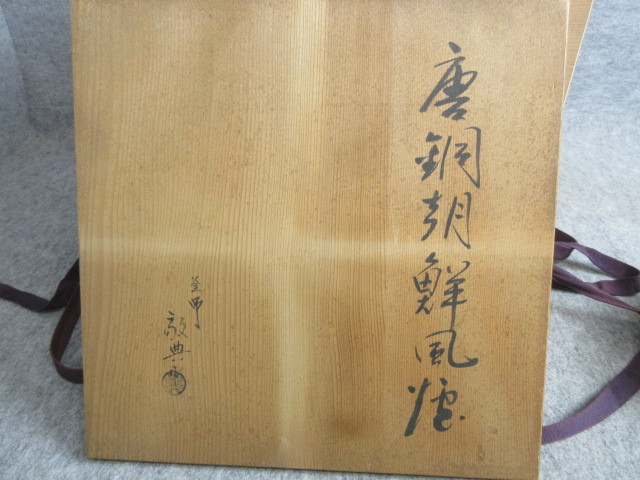 唐銅朝鮮風炉
釜師
敬典